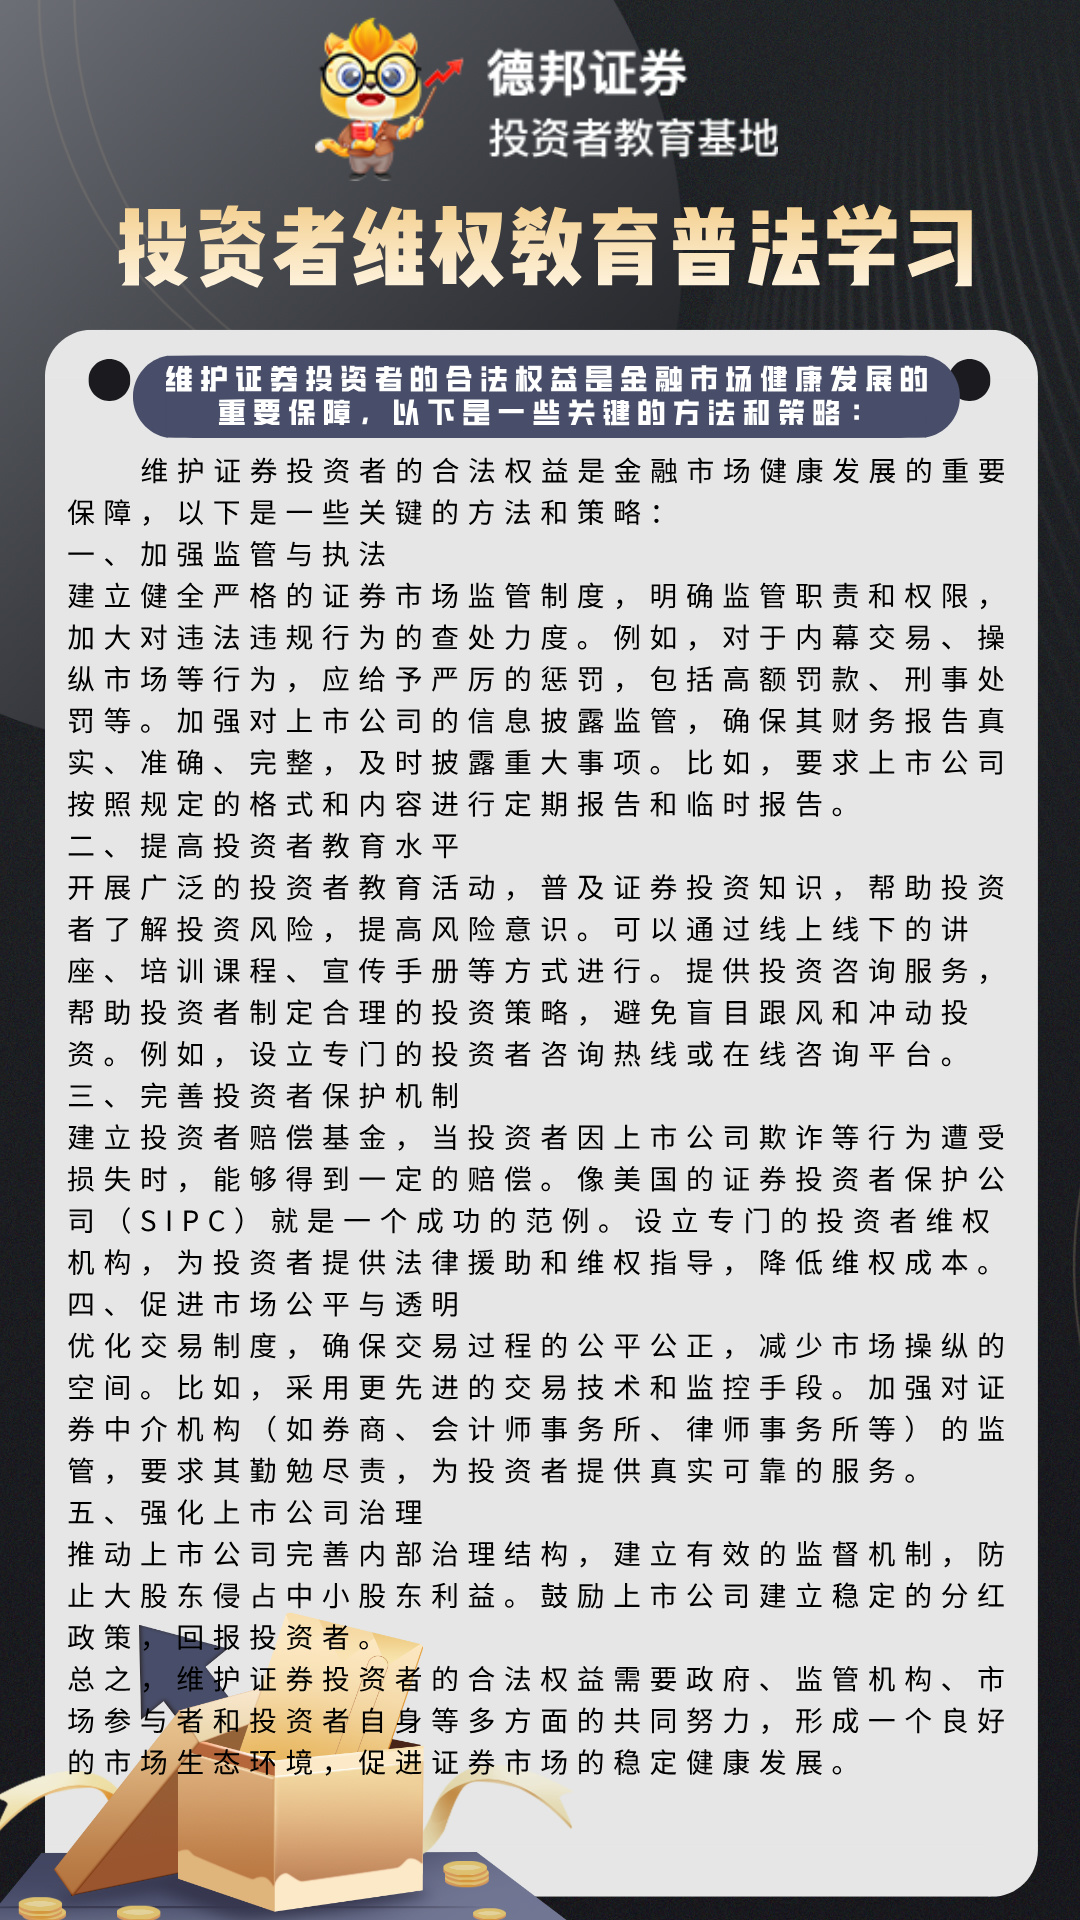 德邦证券
投资者教育基地
投资者维权教育普法学习
维护证券投资者的合法权益是金融市场健康发展的
重要保障，以下是一些关键的方法和策略：
维护证券投资者的合法权益是金融市场健康发展的重要
保障，以下是一些关键的方法和策略：
一、加强监管与执法
建立健全严格的证券市场监管制度，明确监管职责和权限，
加大对违法违规行为的查处力度。例如，对于内幕交易、操
纵市场等行为，应给予严厉的惩罚，包括高额罚款、刑事处
罚等。加强对上市公司的信息披露监管，确保其财务报告真
实、准确、完整，及时披露重大事项。比如，要求上市公司
按照规定的格式和内容进行定期报告和临时报告。
二、提高投资者教育水平
开展广泛的投资者教育活动，普及证券投资知识，帮助投资
者了解投资风险，提高风险意识。可以通过线上线下的讲
座、培训课程、宣传手册等方式进行。提供投资咨询服务，
帮助投资者制定合理的投资策略，避免盲目跟风和冲动投
资。例如，设立专门的投资者咨询热线或在线咨询平台。
三、完善投资者保护机制
建立投资者赔偿基金，当投资者因上市公司欺诈等行为遭受
损失时，能够得到一定的赔偿。像美国的证券投资者保护公
司（SIPC）就是一个成功的范例。设立专门的投资者维权
机构，为投资者提供法律援助和维权指导，降低维权成本。
四、促进市场公平与透明
优化交易制度，确保交易过程的公平公正，减少市场操纵的
空间。比如，采用更先进的交易技术和监控手段。加强对证
券中介机构（如券商、会计师事务所、律师事务所等）的监
管，要求其勤勉尽责，为投资者提供真实可靠的服务。
五、强化上市公司治理
推动上市公司完善内部治理结构，建立有效的监督机制，防
止大股东侵占中小股东利益。鼓励上市公司建立稳定的分红
政策，回报投资者。
总之，维护证券投资者的合法权益需要政府、监管机构、市
场参与者和投资者自身等多方面的共同努力，形成一个良好
的市场生态环境，促进证券市场的稳定健康发展。